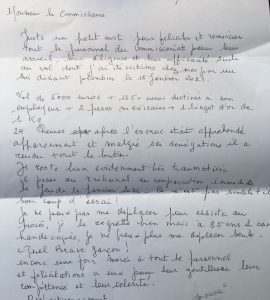 Monsieur le Commissaire
Juste un petit mot pour féliciter et remercier
tout le personnel du commissariat pour leur
accueil, leur diligence et leur efficacité suite
au vol dont j'ai été victime chez moi par un
soi disant plombier le 18 janvier 2021.
Vol de 5000 euros + 1350 euros destinés à son
employeur + 2 pesos mexicains + 1 lingot d'or de
1 kg
24 heures après l'escroc était appréhendé
apparemment et malgré ses dénégations il a
rendu tout le butin
Je reste bien évidemment très traumatisée
Il passe au tribunal en comparution immédiate
le jeudi 21 janvier 2021. pas semble t'il
son coup d'essai !
Je ne peux pas me déplacer pour assister au
procès, je le regrette bien mais à 85 ans &
handicapée, je ne peux plus me déplacer seule.
Quel brave garçon !
encore une fois merci à tout le personnel
et félicitations à eux pour leur gentillesse leur
compétence et leur célérité.